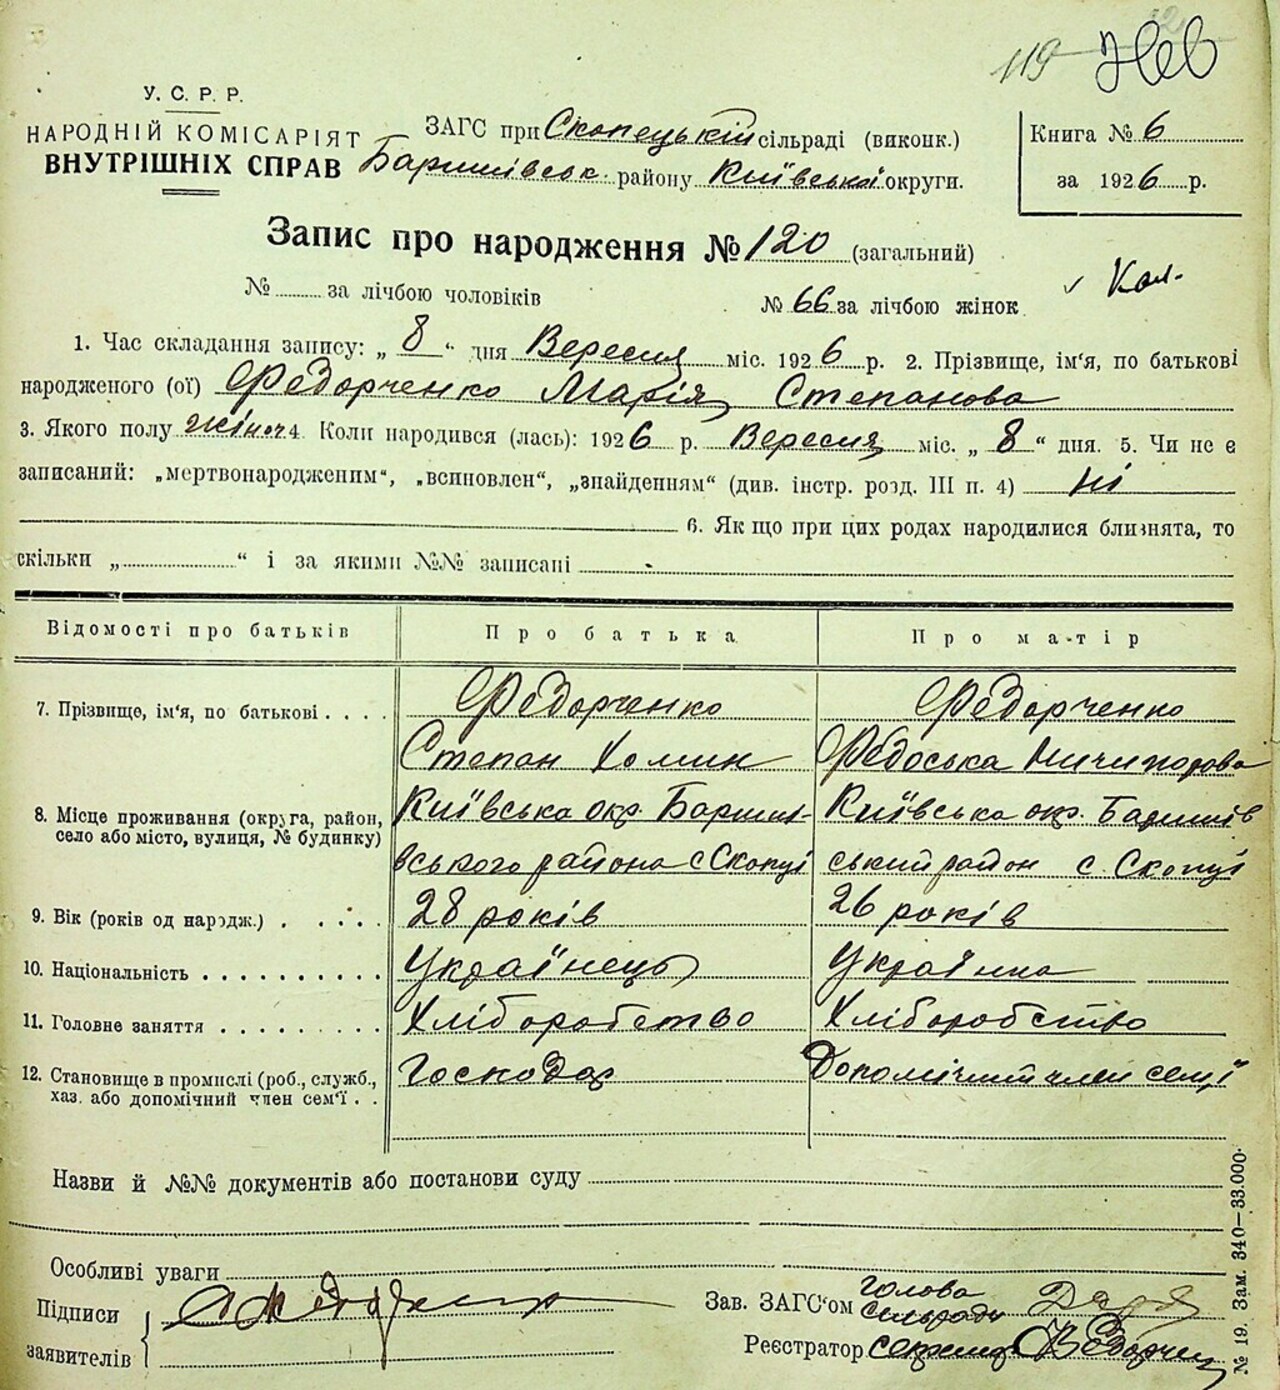 119
У. С. Р. Р.
НАРОДНІЙ КОМІСАРІЯТ
ВНУТРІШНІХ СПРАВ
ЗАГС при Скопецькій сільраді (виконк.)
Баришівськ. району Київської округи.
Книга № 6
за 1926 р.
Запис про народження № 120 (загальний)
№ за лічбою чоловіків
№ 66 за лічбою жінок
1. Час складання запису: „ 8 “ дня Вересня міс. 1926 р. 2. Прізвище, ім'я, по батькові
народженого (ої) Федорченко Марія Степанова
3. Якого полу жіноч 4. Коли народився (лась): 1926 р. Вересня міс. „ 8 “ дня. 5. Чи не є
записаний: „мертвонародженим“, „всиновлен“, „знайденням“ (див. інстр. розд. III п. 4) ні
6. Як що при цих родах народилися близнята, то
скільки „ “ і за якими №№ записані
Відомості про батьків Про батька Про матір
7. Прізвище, ім'я, по батькові . . . . Федорченко Федорченко
Степан Хомин Федоська Ничипорова
8. Місце проживання (округа, район, Київська окр. Бариші- Київська окр. Баришів
село або місто, вулиця, № будинку)
вського района с Скопці ський район с. Скопці
9. Вік (років од народж.) . . . . 28 років 26 років
10. Національність . . . . . . . . . . Українець Українка
11. Головне заняття . . . . . . . . . Хліборобство Хліборобство
12. Становище в промислі (роб., служб., Господар Допомічний член семʼї
хаз. або допомічний член сем'ї . .
Назви й №№ документів або постанови суду
Особливі уваги
Підписи
заявителів
Зав. ЗАГС'ом голова
сільради
Реєстратор секретар Федорчен
№ 19. Зам. 340—33.000.